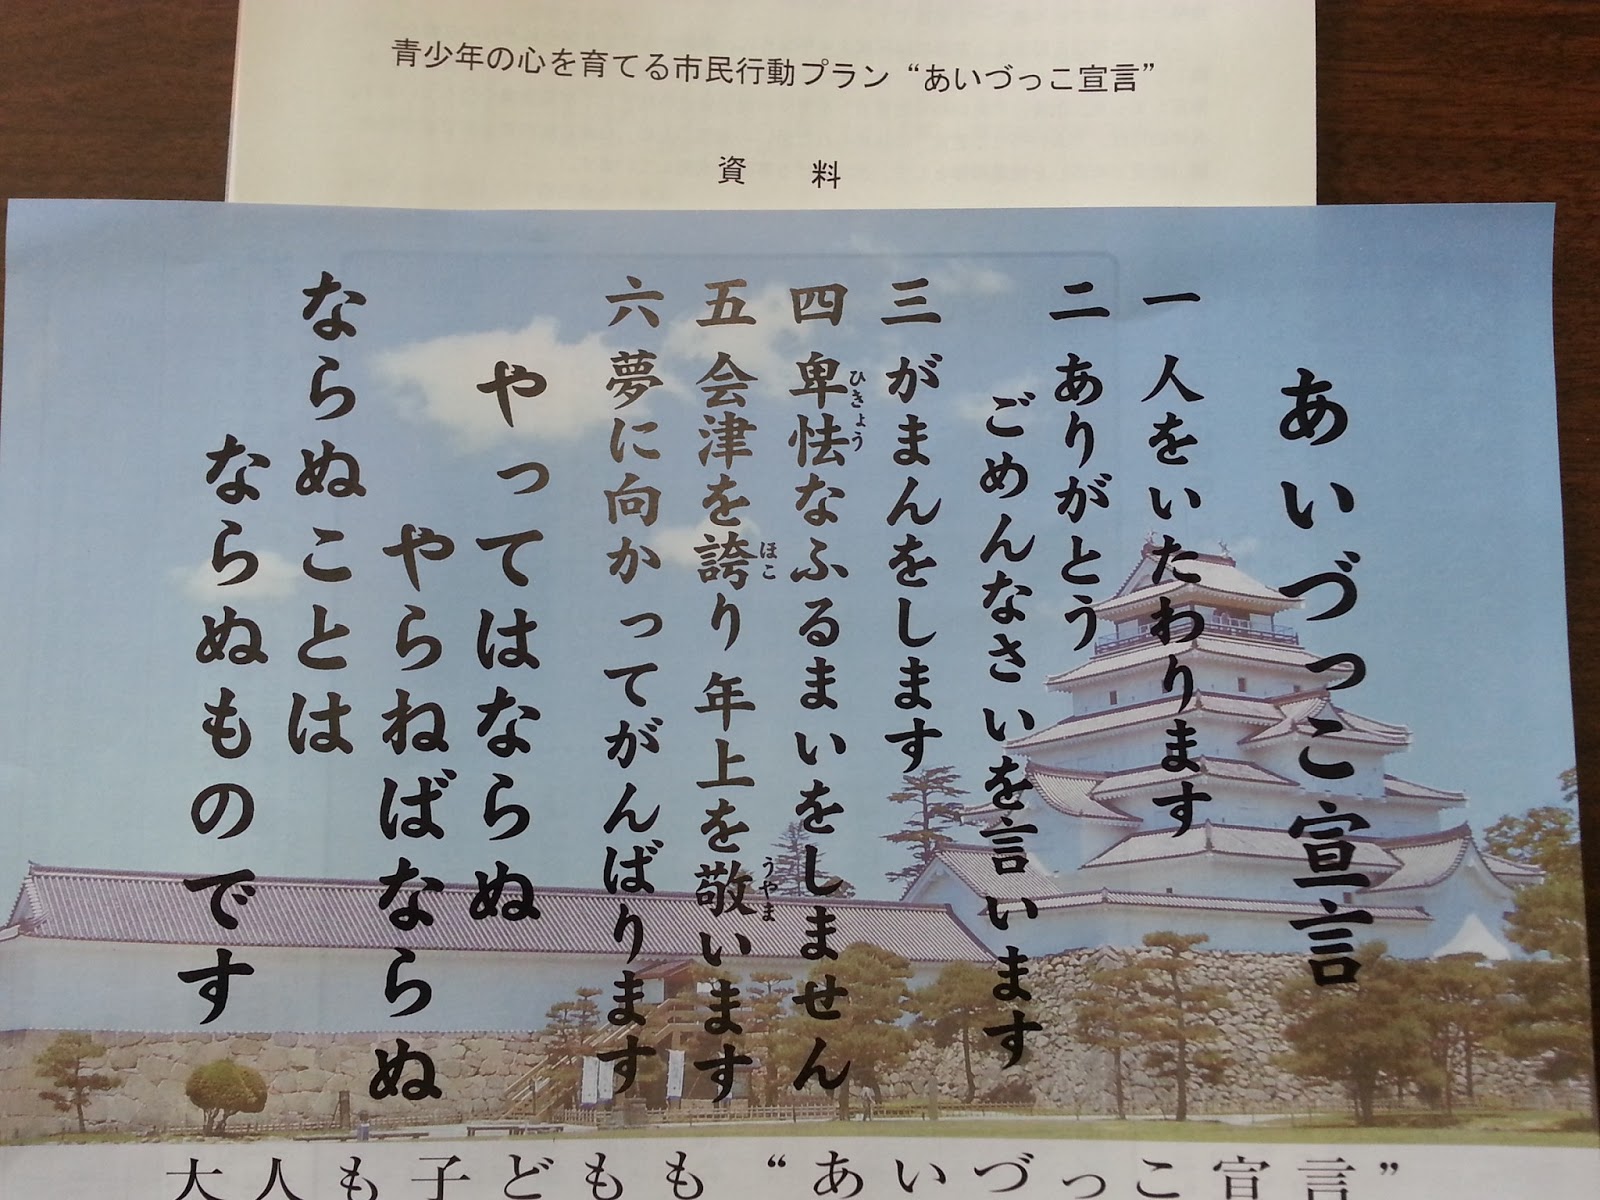 青少年の心を育てる市民行動プラン“あいづっこ宣言”
資　料
あいづっこ宣言
一 人をいたわります
二 ありがとう
ごめんなさいを言います
三 がまんをします
四 卑怯なふるまいをしません
ひきょう
五 会津を誇り 年上を敬います
ほこ
うやま
六 夢に向かってがんばります
やってはならぬ
やらねばならぬ
ならぬことは
ならぬものです
大人も子どもも“あいづっこ宣言”